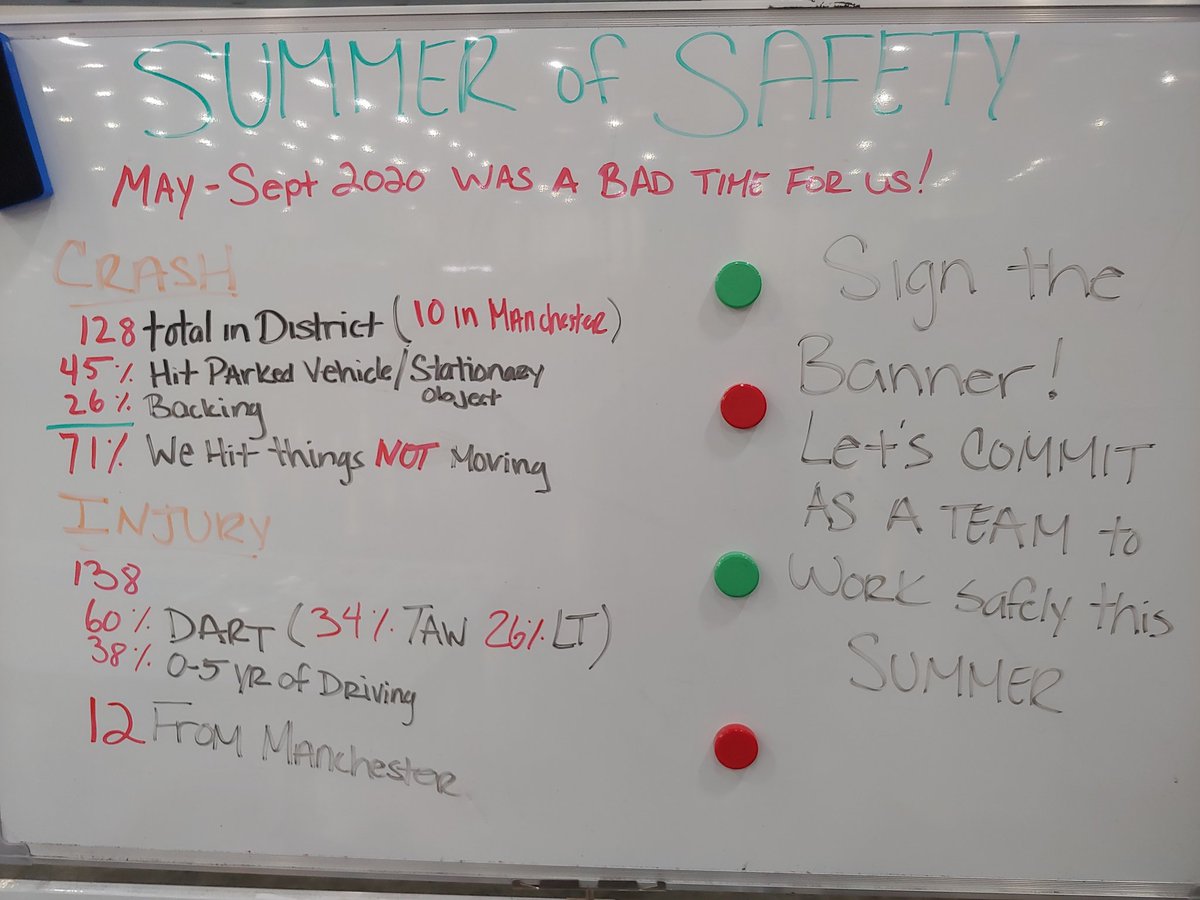 SUMMER of SAFETY
MAY - Sept 2020 WAS A BAD TIME FOR US!
CRASH
128 total in District (10 in Manchester)
45% Hit Parked Vehicle/Stationary
object
26% Backing
71% We Hit things NOT Moving
INJURY
138
60% DART (34% TAW 26% LT)
38% 0-5 YR of Driving
12 From Manchester
Sign the
Banner!
Let's COMMIT
AS A TEAM to
Work safely this
SUMMER